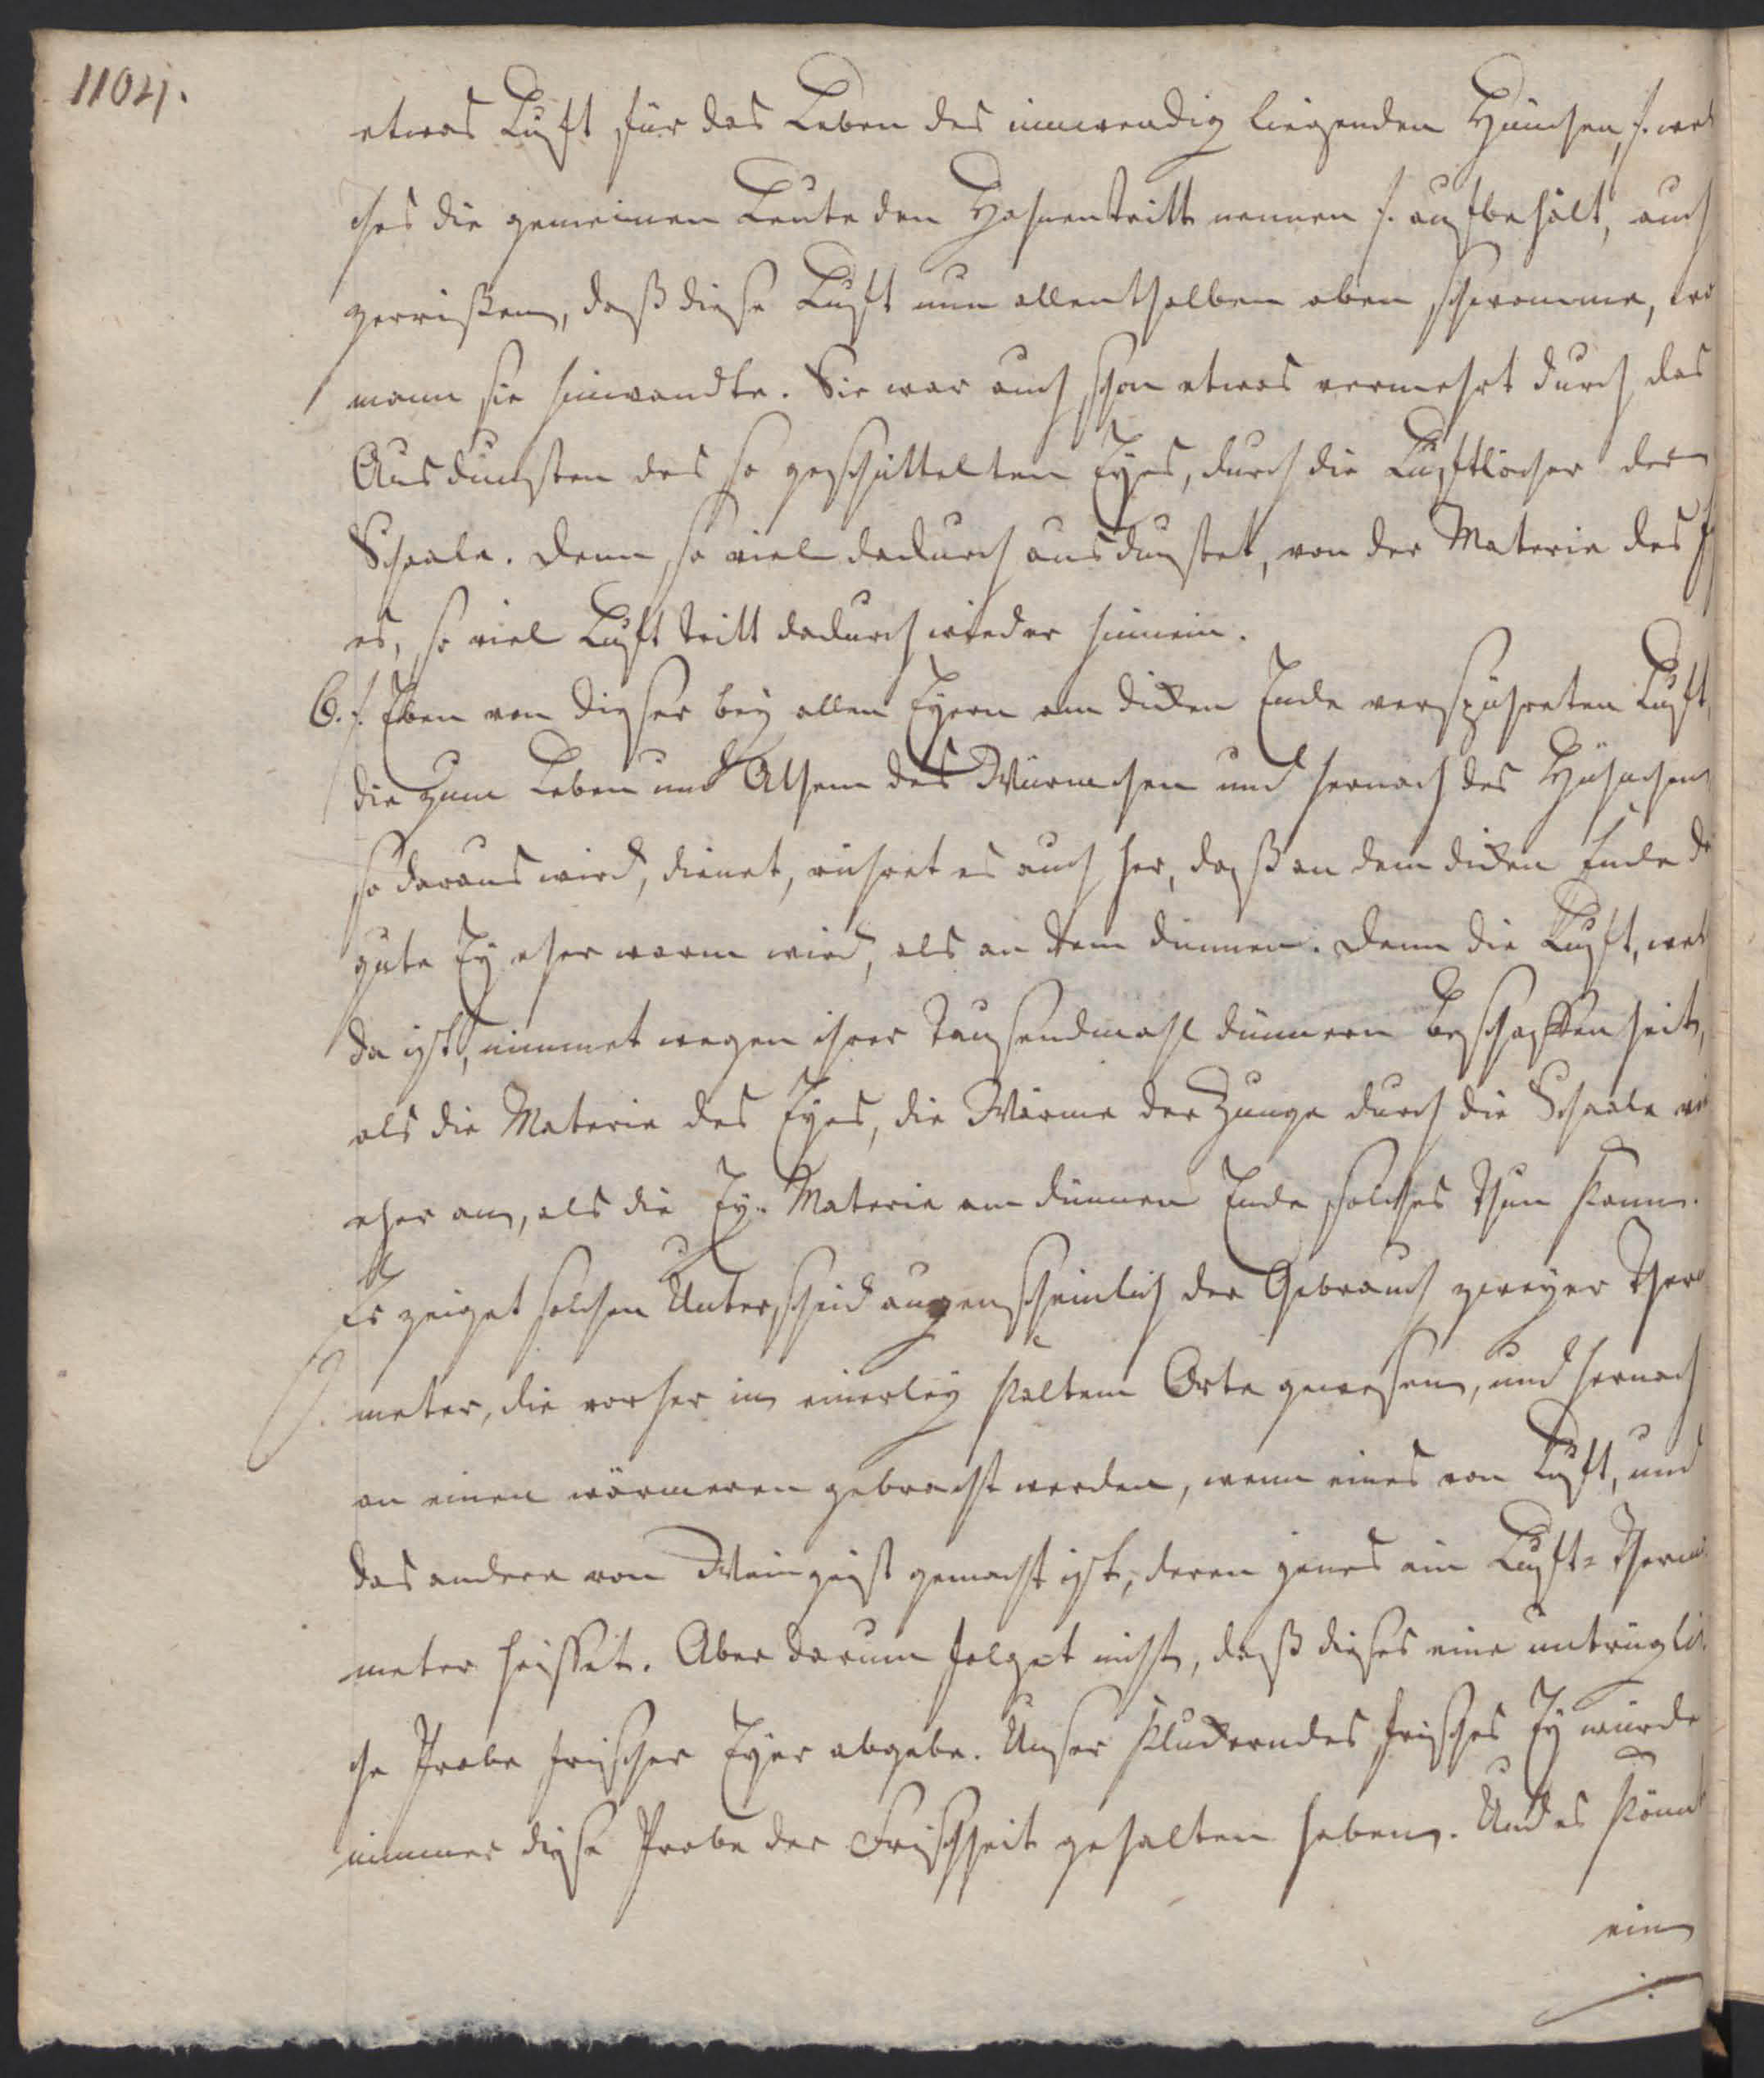 1104.
etwas Luft für das Leben des inwendig liegenden Hünchen, /. wel
ches die gemeinen Leute den Hahnentritt nennen /. aufbehält, auch
zerrißen, daß diese Luft nun allenthalben oben schwamme, wo
mann sie hinwandte. Sie war auch schon etwas vermehrt durch das
Ausdünsten des so geschüttelten Eyes, durch die Luftlöcher der
Schaale. Denn so viel dadurch ausdunstet, von der Materie des
es, so viel Luft tritt dadurch wieder hinein.
6. /. Eben von dieser bey allen Eyern am dicken Ende verspühreten Luft,
die zum Leben und Athem des Würmchen und hernach des Hühnchen
so daraus wird, dienet, rühret es auch her, daß an dem dicken Ende d
gute Ey eher warm wird, als an dem dünnen. Denn die Luft, wel
da ist, nimmet wegen ihrer Tausendmahl dünnern Beschaffenheit,
als die Materie des Eyes, die Wärme der Zunge durch die Schaale vi
eher an, als die Ey-Materie am dünnen Ende solches thun kann.
Es zeiget solchen Unterscheid augenscheinlich der Gebrauch zweyer Thermo
meter, die vorher in einerley kaltem Orte gewesen, und hernach
an einen wärmeren gebracht werden, wenn eines von Luft, und
das andere von Weingeist gemacht ist, deren jenes ein Luft-Thermo
meter heisset. Aber darum folget nicht, daß dieses eine untrügli
che Probe frischer Eyer abgebe. Unser kluckerndes frisches Ey würde
nimmer diese Probe der Frischheit gehalten haben. Und es könnt
ein